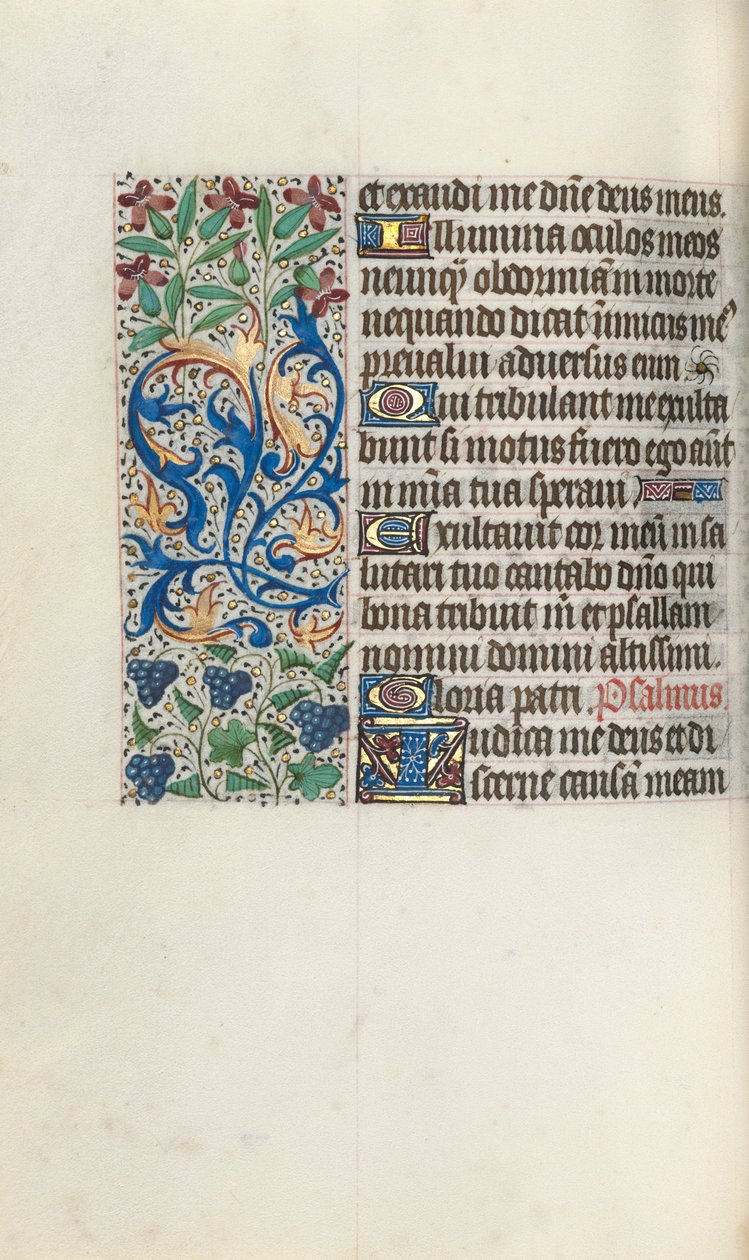 et exaudi me dn̄e deus meus.
Illumina oculos meos
ne unqȝ obdormiā in morte
nequando dicat inimicus meꝰ
preualui aduersus eum
Qui tribulant me exulta
bunt si motus fuero ego aūt
in mīa tua speraui
Exultauit cor meū in sa
lutari tuo cantabo dn̄o qui
bona tribuit m̄ et psallam
nomini domini altissimi.
Gloria patri. Psalmus.
Iudica me deus et di
scerne causā meam